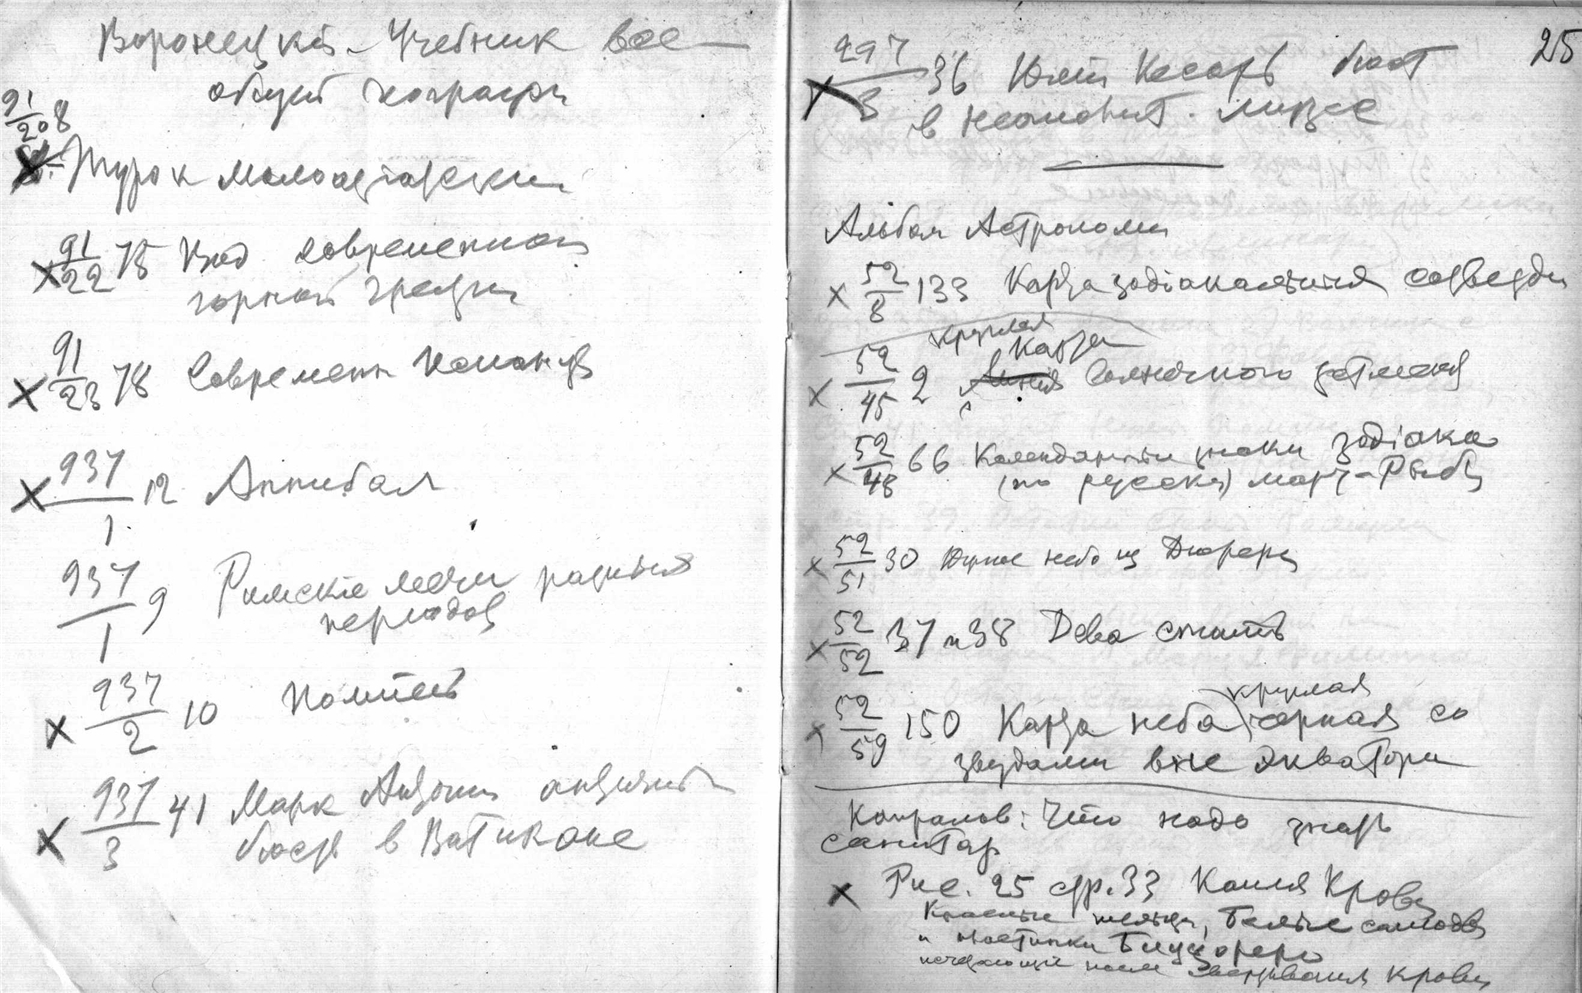 Воронецкий - Учебник все
общей географи
91/20 8
Турок малоазиатский
91/22 75 Вход современной
горной Греции
91/23 78 Современн испанцы
937/1 12 Аннибал
937/1 9 Римские мечи разных
периодов
937/2 10 Помпей
937/3 41 Марк Антоний античный
бюст в Ватикане
25
297/3 36 Юлий Кесарь бюст
в неаполит. музее
Альбом Астрономи
52/8 133 Карта зодiакальныя созвезди
круглая
Карта
52/45 2 Солнечного затмения
52/48 66 Календарные знаки зодiака
(по русски) март - Рыбы
52/51 30 небо из Дюрера
52/52 37 и 38 Дева
круглая
52/59 150 Карта неба черная со
звездами вне экватори
Капралов: Что надо знать
санитар
Рис. 25 стр. 33 Капля Крови
Красные тельца, Белые
и пластинки Биццоцеро
после свертывания крови